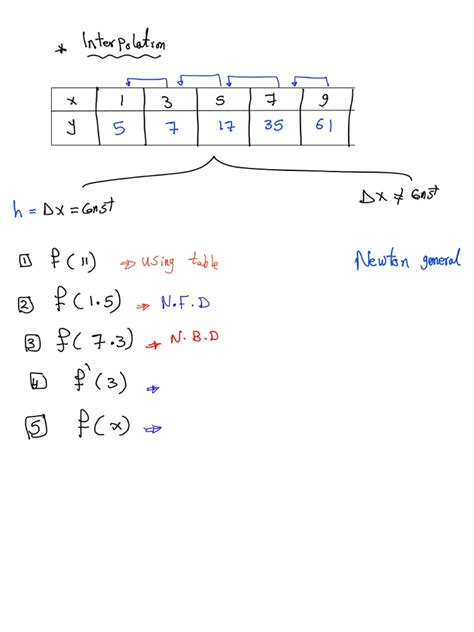 * Interpolation
x 1 3 5 7 9
y 5 7 17 35 61
h = Δx = Const
Δx ≠ Const
1 f(11) ⇒ using table
Newton general
2 f(1.5) ⇒ N.F.D
3 f(7.3) ⇒ N.B.D
4 f'(3) ⇒
5 f(x) ⇒